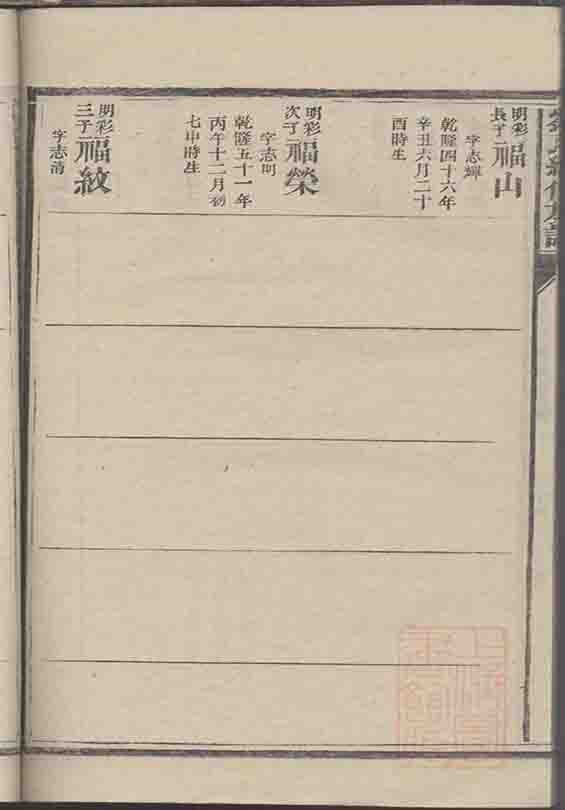 明彩
長子
福山
字志輝
乾隆四十六年
辛丑六月二十
酉時生
明彩
次子
福榮
字志明
乾隆五十一年
丙午十二月初
七申時生
明彩
三子
福紋
字志清